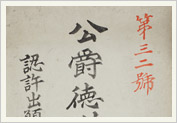 第三二號
公爵徳
認許出願